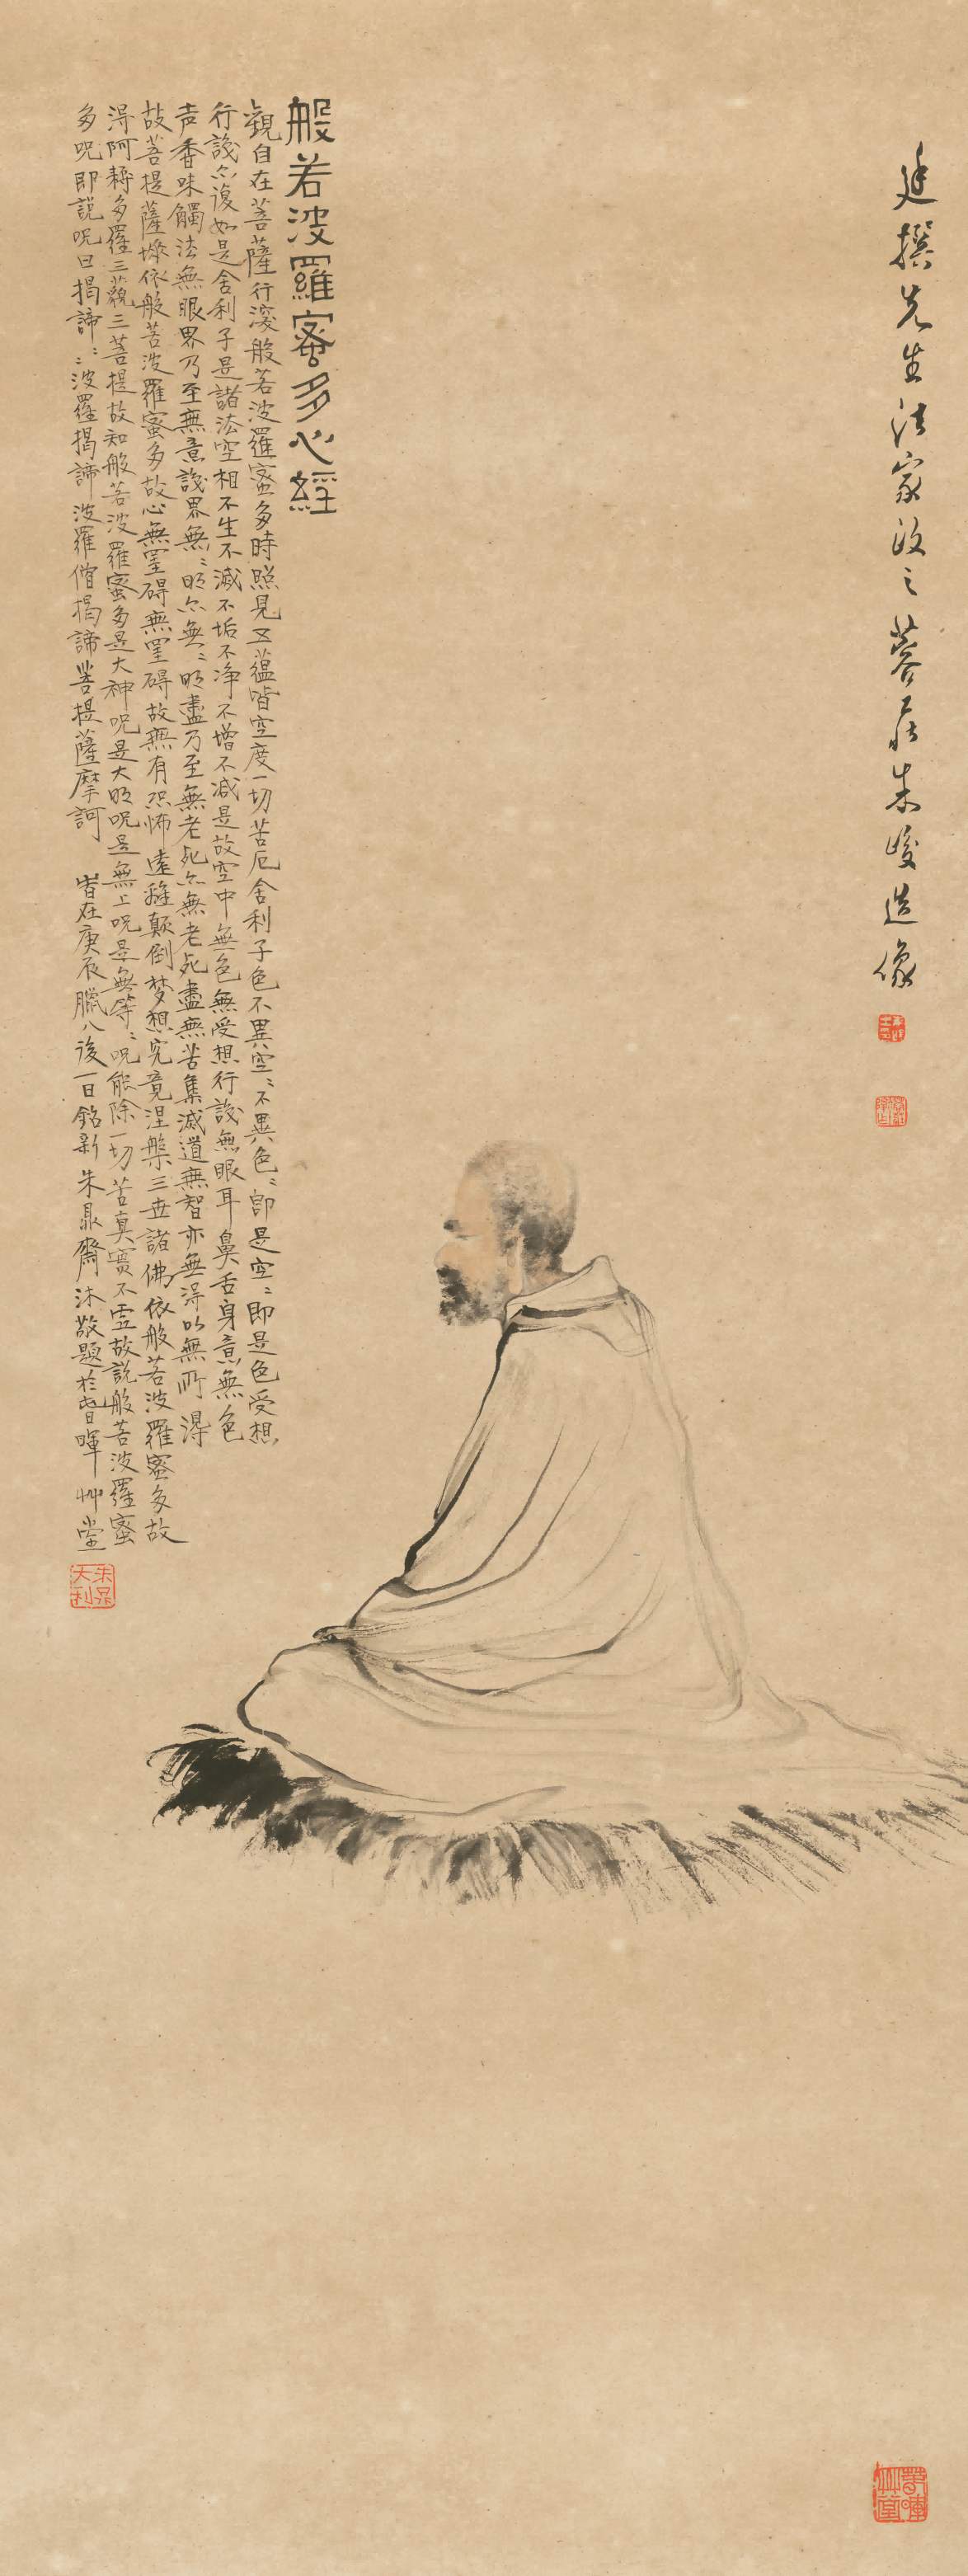 廷撰先生法家政之蓉庄朱峻造像
般若波羅蜜多心經
觀自在菩薩行深般若波羅蜜多時照見五蘊皆空度一切苦厄舍利子色不異空〻不異色〻即是空〻即是色受想
行識亦復如是舍利子是諸法空相不生不滅不垢不净不增不减是故空中無色無受想行識無眼耳鼻舌身意無色
声香味觸法無眼界乃至無意識界無〻明亦無〻明盡乃至無老死亦無老死盡無苦集滅道無智亦無得以無所得
故菩提薩埵依般若波羅蜜多故心無罣碍無罣碍故無有恐怖遠離顛倒梦想究竟涅槃三世諸佛依般若波羅蜜多故
得阿耨多羅三藐三菩提故知般若波羅蜜多是大神呪是大明呪是無上呪是無等〻呪能除一切苦真實不虛故説般若波羅蜜
多呪即説呪曰揭諦〻〻波羅揭諦波羅僧揭諦菩提薩摩訶 旹在庚辰臘八後一日銘新朱鼎齋沐敬題於春暉艸堂
朱鼎
大利
春暉
艸堂